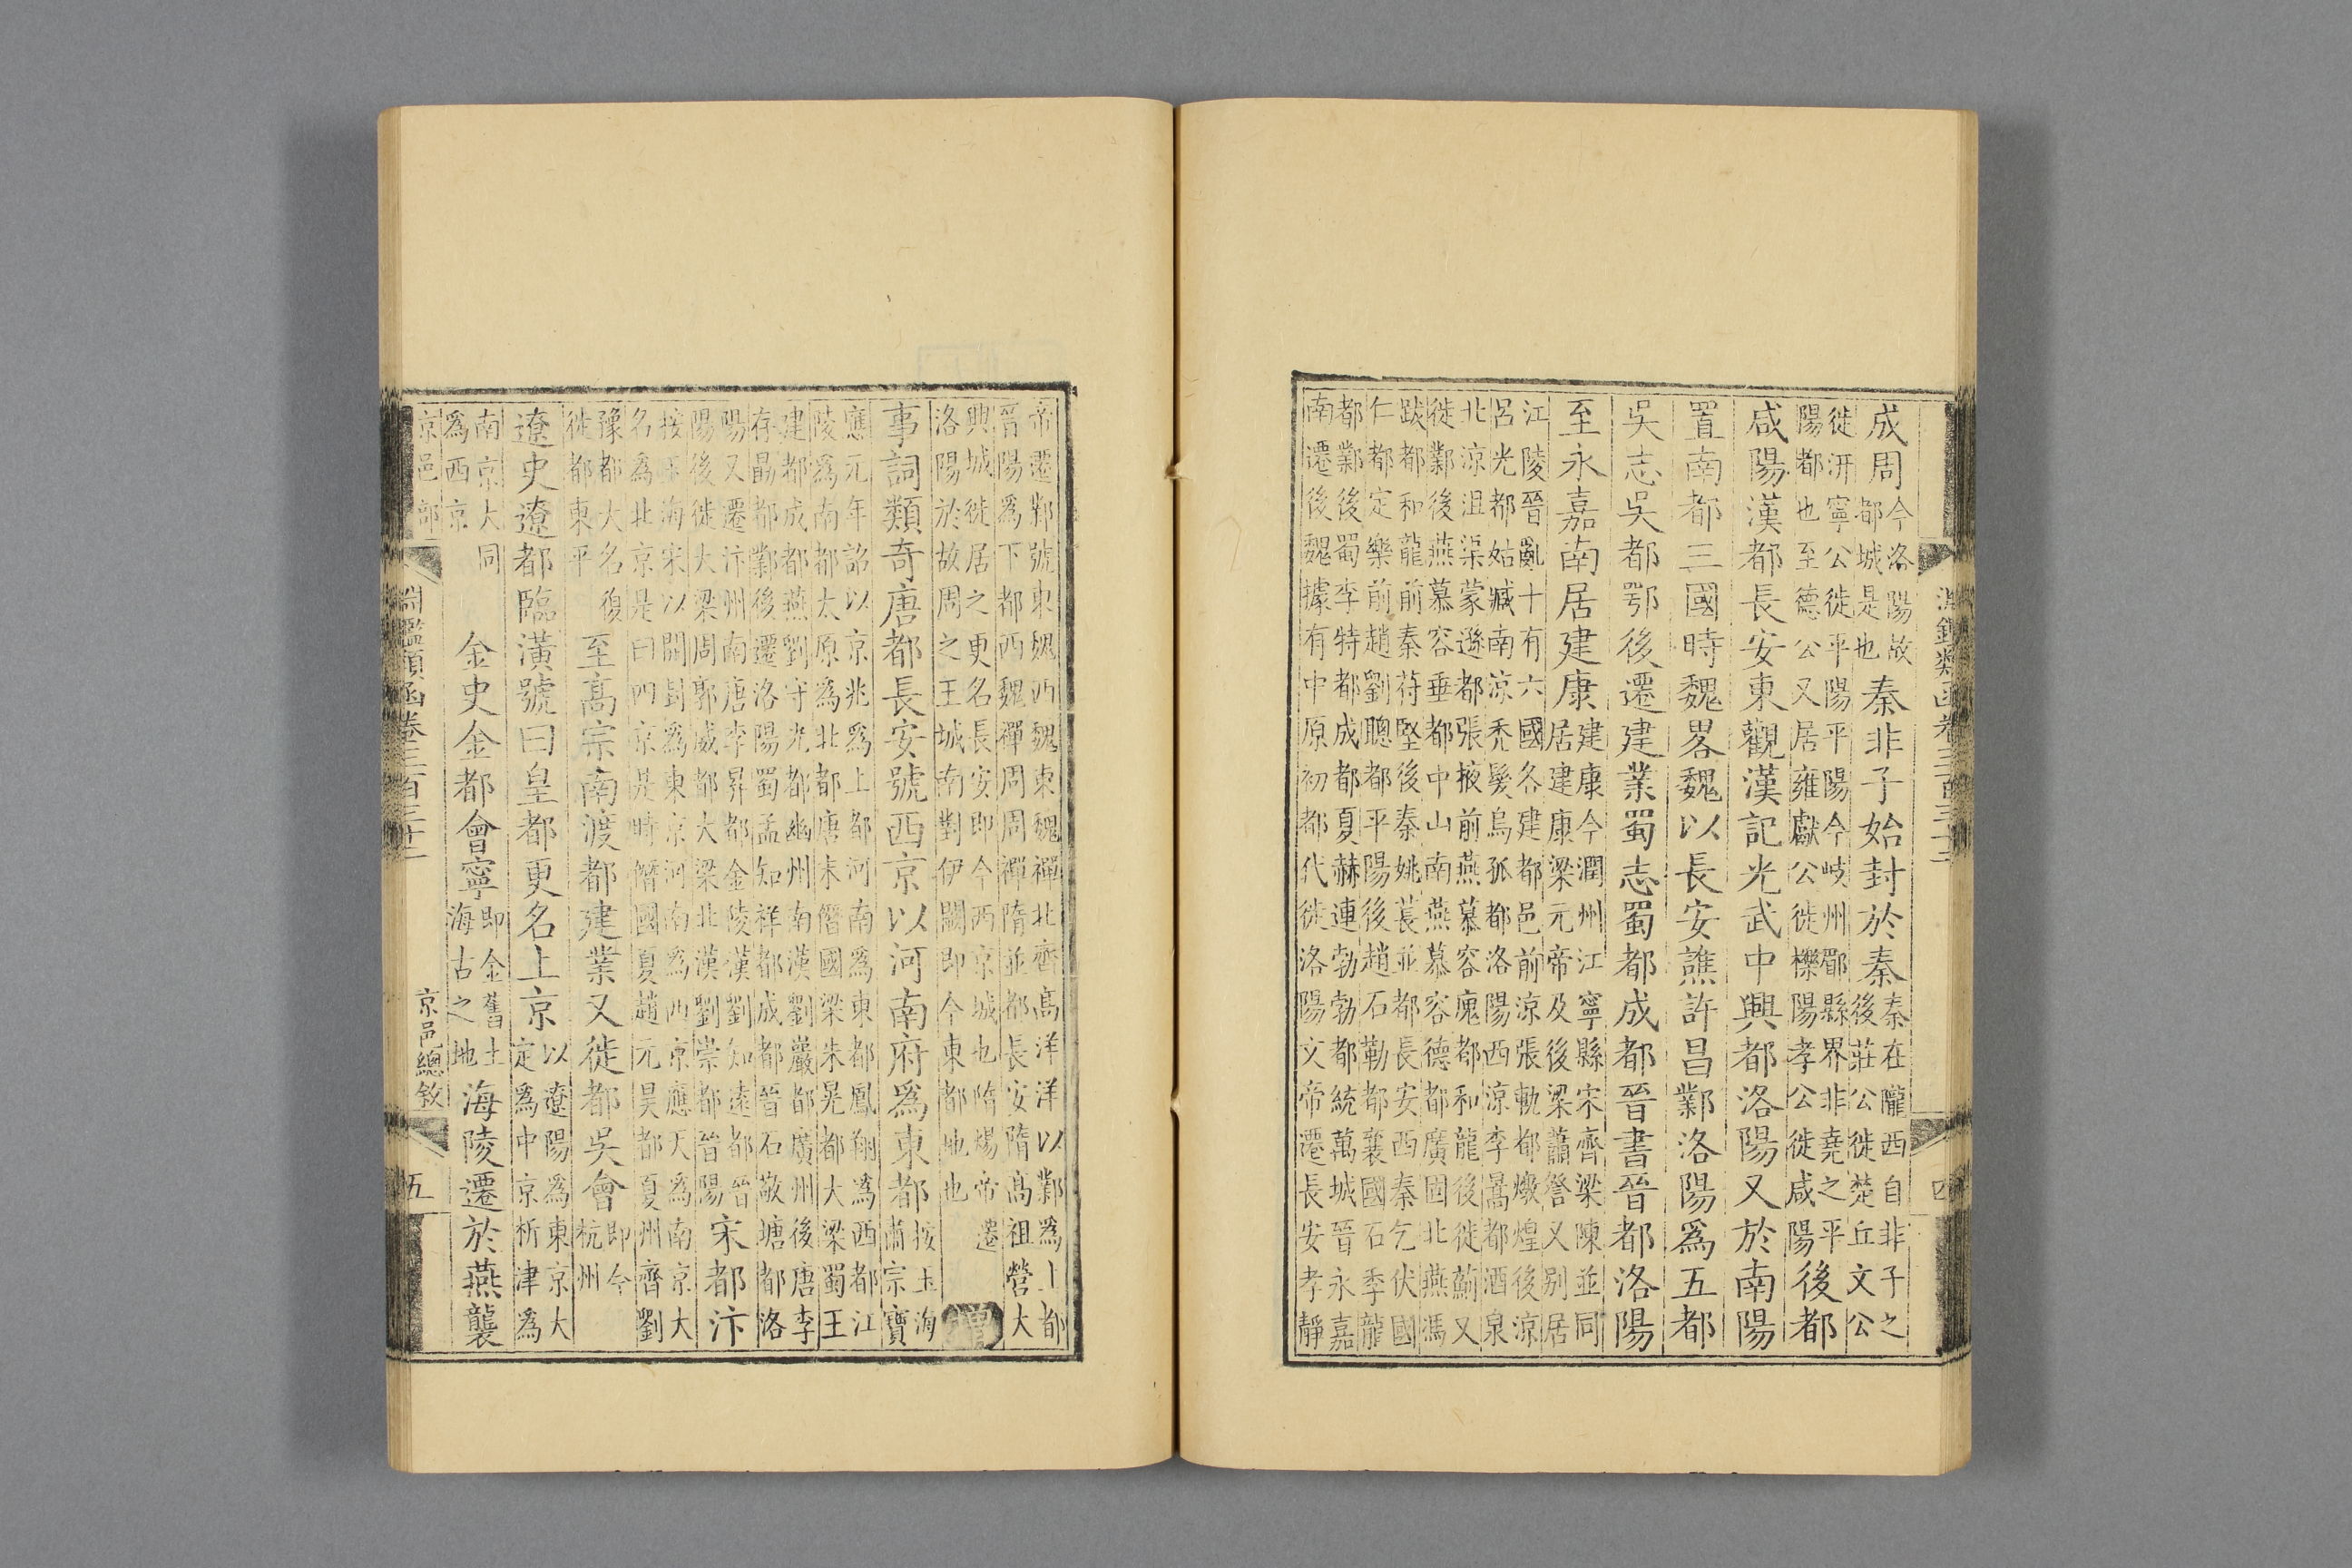 淵鑑類函卷三百三十三
四
成周今洛陽故都城是也秦非子始封於秦秦在隴西自非子之後莊公徙楚丘文公
徙汧寧公徙平陽平陽今岐州郿縣界非堯之平陽都也至德公又居雍獻公徙櫟陽孝公徙咸陽後都
咸陽漢都長安東觀漢記光武中興都洛陽又於南陽
置南都三國時魏畧魏以長安譙許昌鄴洛陽爲五都
吳志吳都鄂後遷建業蜀志蜀都成都晉書晉都洛陽
至永嘉南居建康建康今潤州江寧縣宋齊梁陳並同居建康梁元帝及後梁蕭詧又别居
江陵晉亂十有六國各建都邑前涼張軌都燉煌後涼呂光都姑臧南涼禿髮烏孤都洛陽西涼李暠都酒泉
北涼沮渠蒙遜都張掖前燕慕容廆都和龍後徙薊又徙鄴後燕慕容垂都中山南燕慕容德都廣固北燕馮
跋都和龍前秦苻堅後秦姚萇並都長安西秦乞伏國仁都定樂前趙劉聰都平陽後趙石勒都襄國石季龍
都鄴後蜀李特都成都夏赫連勃勃都統萬城晉永嘉南遷後魏據有中原初都代徙洛陽文帝遷長安孝靜
帝遷鄴號東魏西魏東魏禪北齊高洋洋以鄴爲上都晉陽爲下都西魏禪周周禪隋並都長安隋高祖營大
興城徙居之更名長安即今西京城也隋煬帝遷洛陽於故周之王城南對伊闕即今東都地也增
事詞類奇唐都長安號西京以河南府爲東都按玉海肅宗寶
應元年詔以京兆爲上都河南爲東都鳳翔爲西都江陵爲南都太原爲北都唐末僭國梁朱晃都大梁蜀王
建都成都燕劉守光都幽州南漢劉巖都廣州後唐李存勗都鄴後遷洛陽蜀孟知祥都成都晉石敬塘都洛
陽又遷汴州南唐李昇都金陵漢劉知遠都晉陽後徙大梁周郭威都大梁北漢劉崇都晉陽宋都汴
按玉海宋以開封爲東京河南爲西京應天爲南京大名爲北京是曰四京是時僭國夏趙元昊都夏州齊劉
豫都大名復徙都東平至高宗南渡都建業又徙都吳會即今杭州
遼史遼都臨潢號曰皇都更名上京以遼陽爲東京大定爲中京析津爲
南京大同爲西京金史金都會寧即金舊土海古之地海陵遷於燕襲
京邑部一
淵鑑類函卷三百三十三
京邑總敘
五